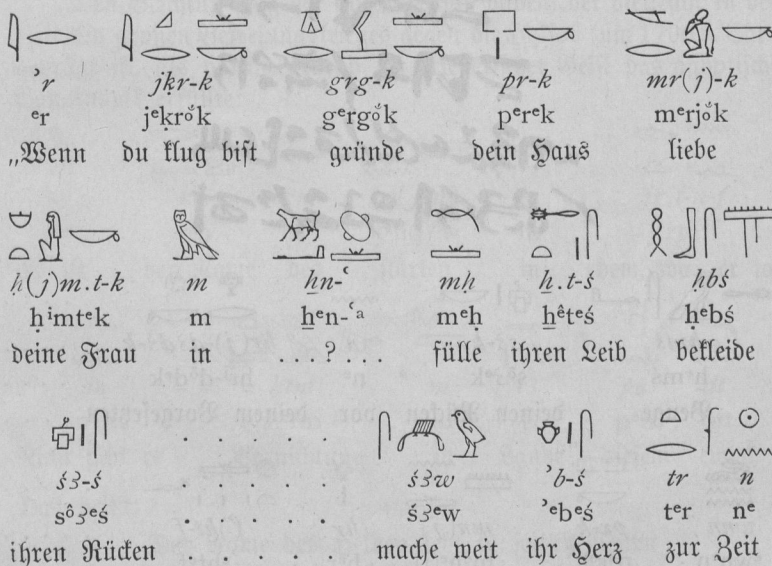 ʾr jḳr-k grg-k pr-k mr(j)-k
ᵉr jᵉḳrŏ́k gᵉrgŏ́k pᵉrᵉk mᵉrjŏ́k
„Wenn du klug bist gründe dein Haus liebe
ḥ(j)m.t-k m ẖn-ʿ mḥ ẖ.t-ś ḥbś
ḥⁱmtᵉk m ẖᵉn-ʿᵃ mᵉḥ ẖêtᵉś ḥᵉbś
deine Frau in . . ? . . . fülle ihren Leib bekleide
śꜣ-ś . . . . . śꜣw ʾb-ś tr n
sôꜣᵉś . . . . . śꜣᵉw ʾᵉbᵉś tᵉr nᵉ
ihren Rücken . . . . . mache weit ihr Herz zur Zeit